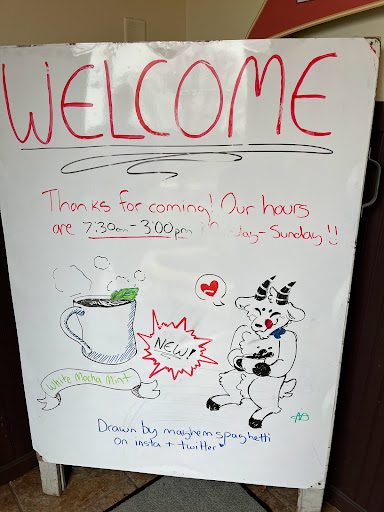 WELCOME
Thanks for coming! Our hours
are 7:30am - 3:00pm - Sunday!!
NEW!
White Mocha Mint
Drawn by mayhem spaghetti
on insta + twitter